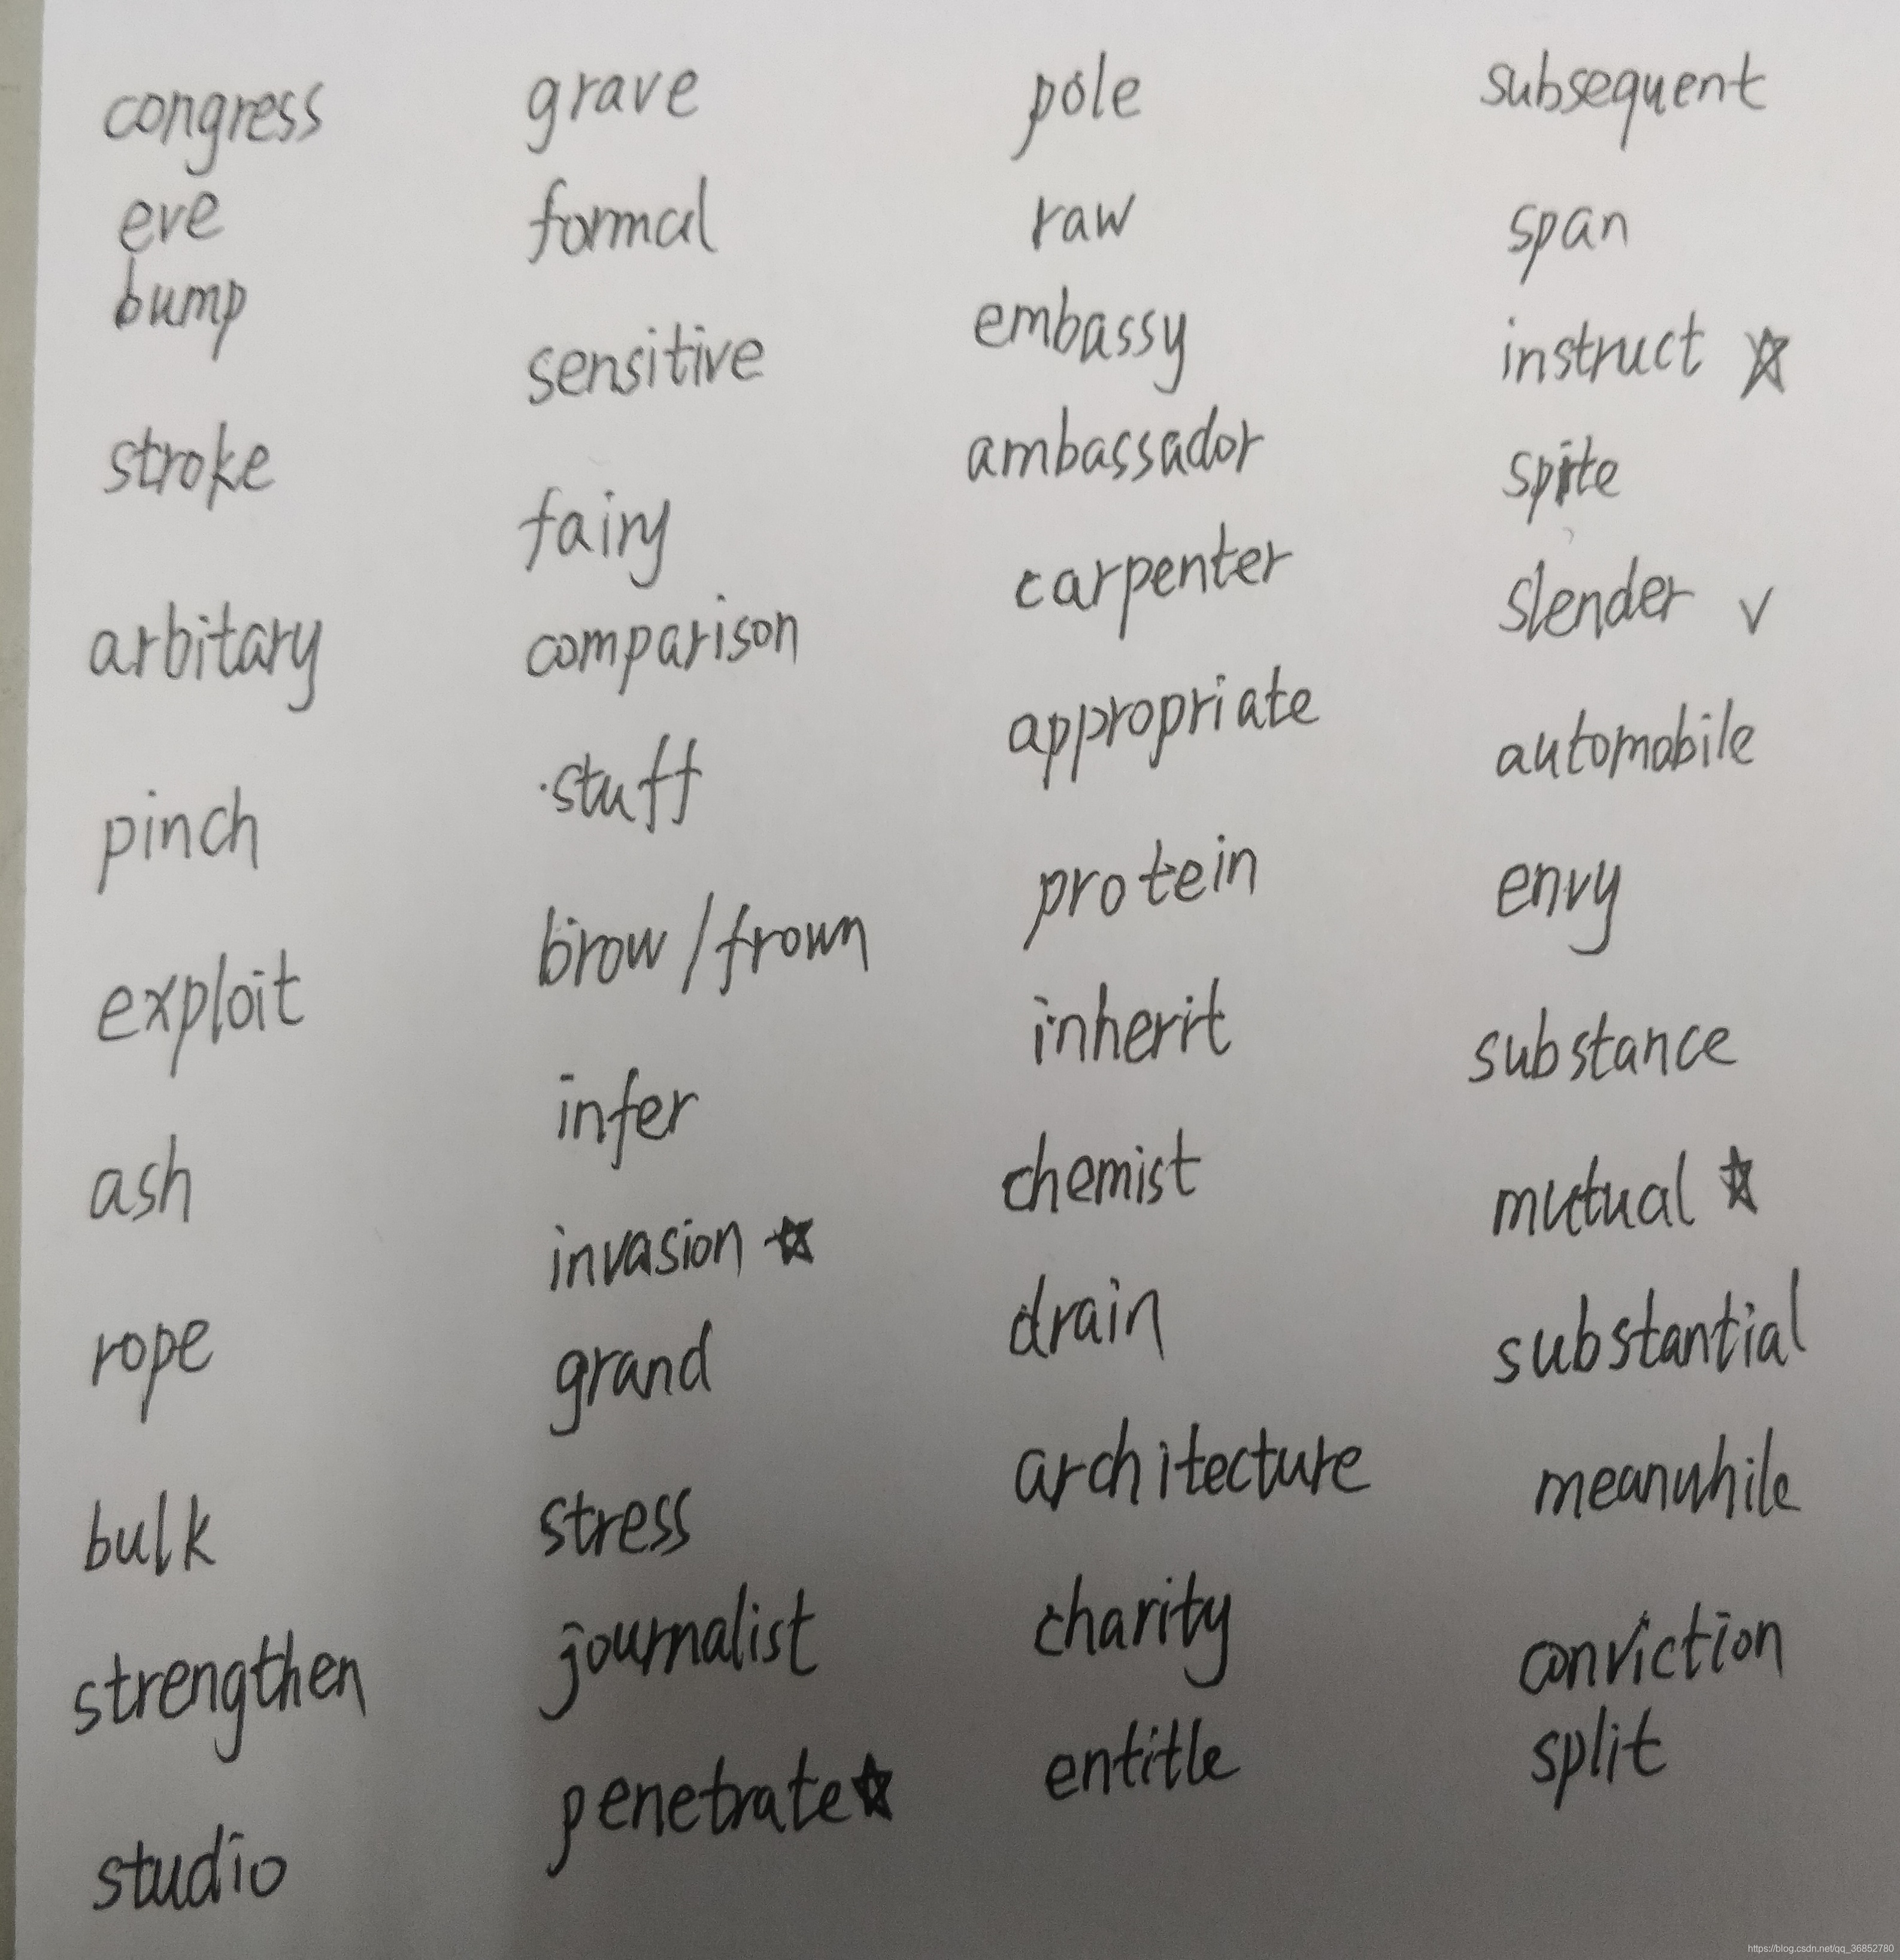 congress
eve
bump
stroke
arbitary
pinch
exploit
ash
rope
bulk
strengthen
studio
grave
formal
sensitive
fairy
comparison
stuff
brow / frown
infer
invasion ☆
grand
stress
journalist
penetrate ☆
pole
raw
embassy
ambassador
carpenter
appropriate
protein
inherit
chemist
drain
architecture
charity
entitle
subsequent
span
instruct ☆
spite
slender ✓
automobile
envy
substance
mutual ☆
substantial
meanwhile
conviction
split
https://blog.csdn.net/qq_36852780